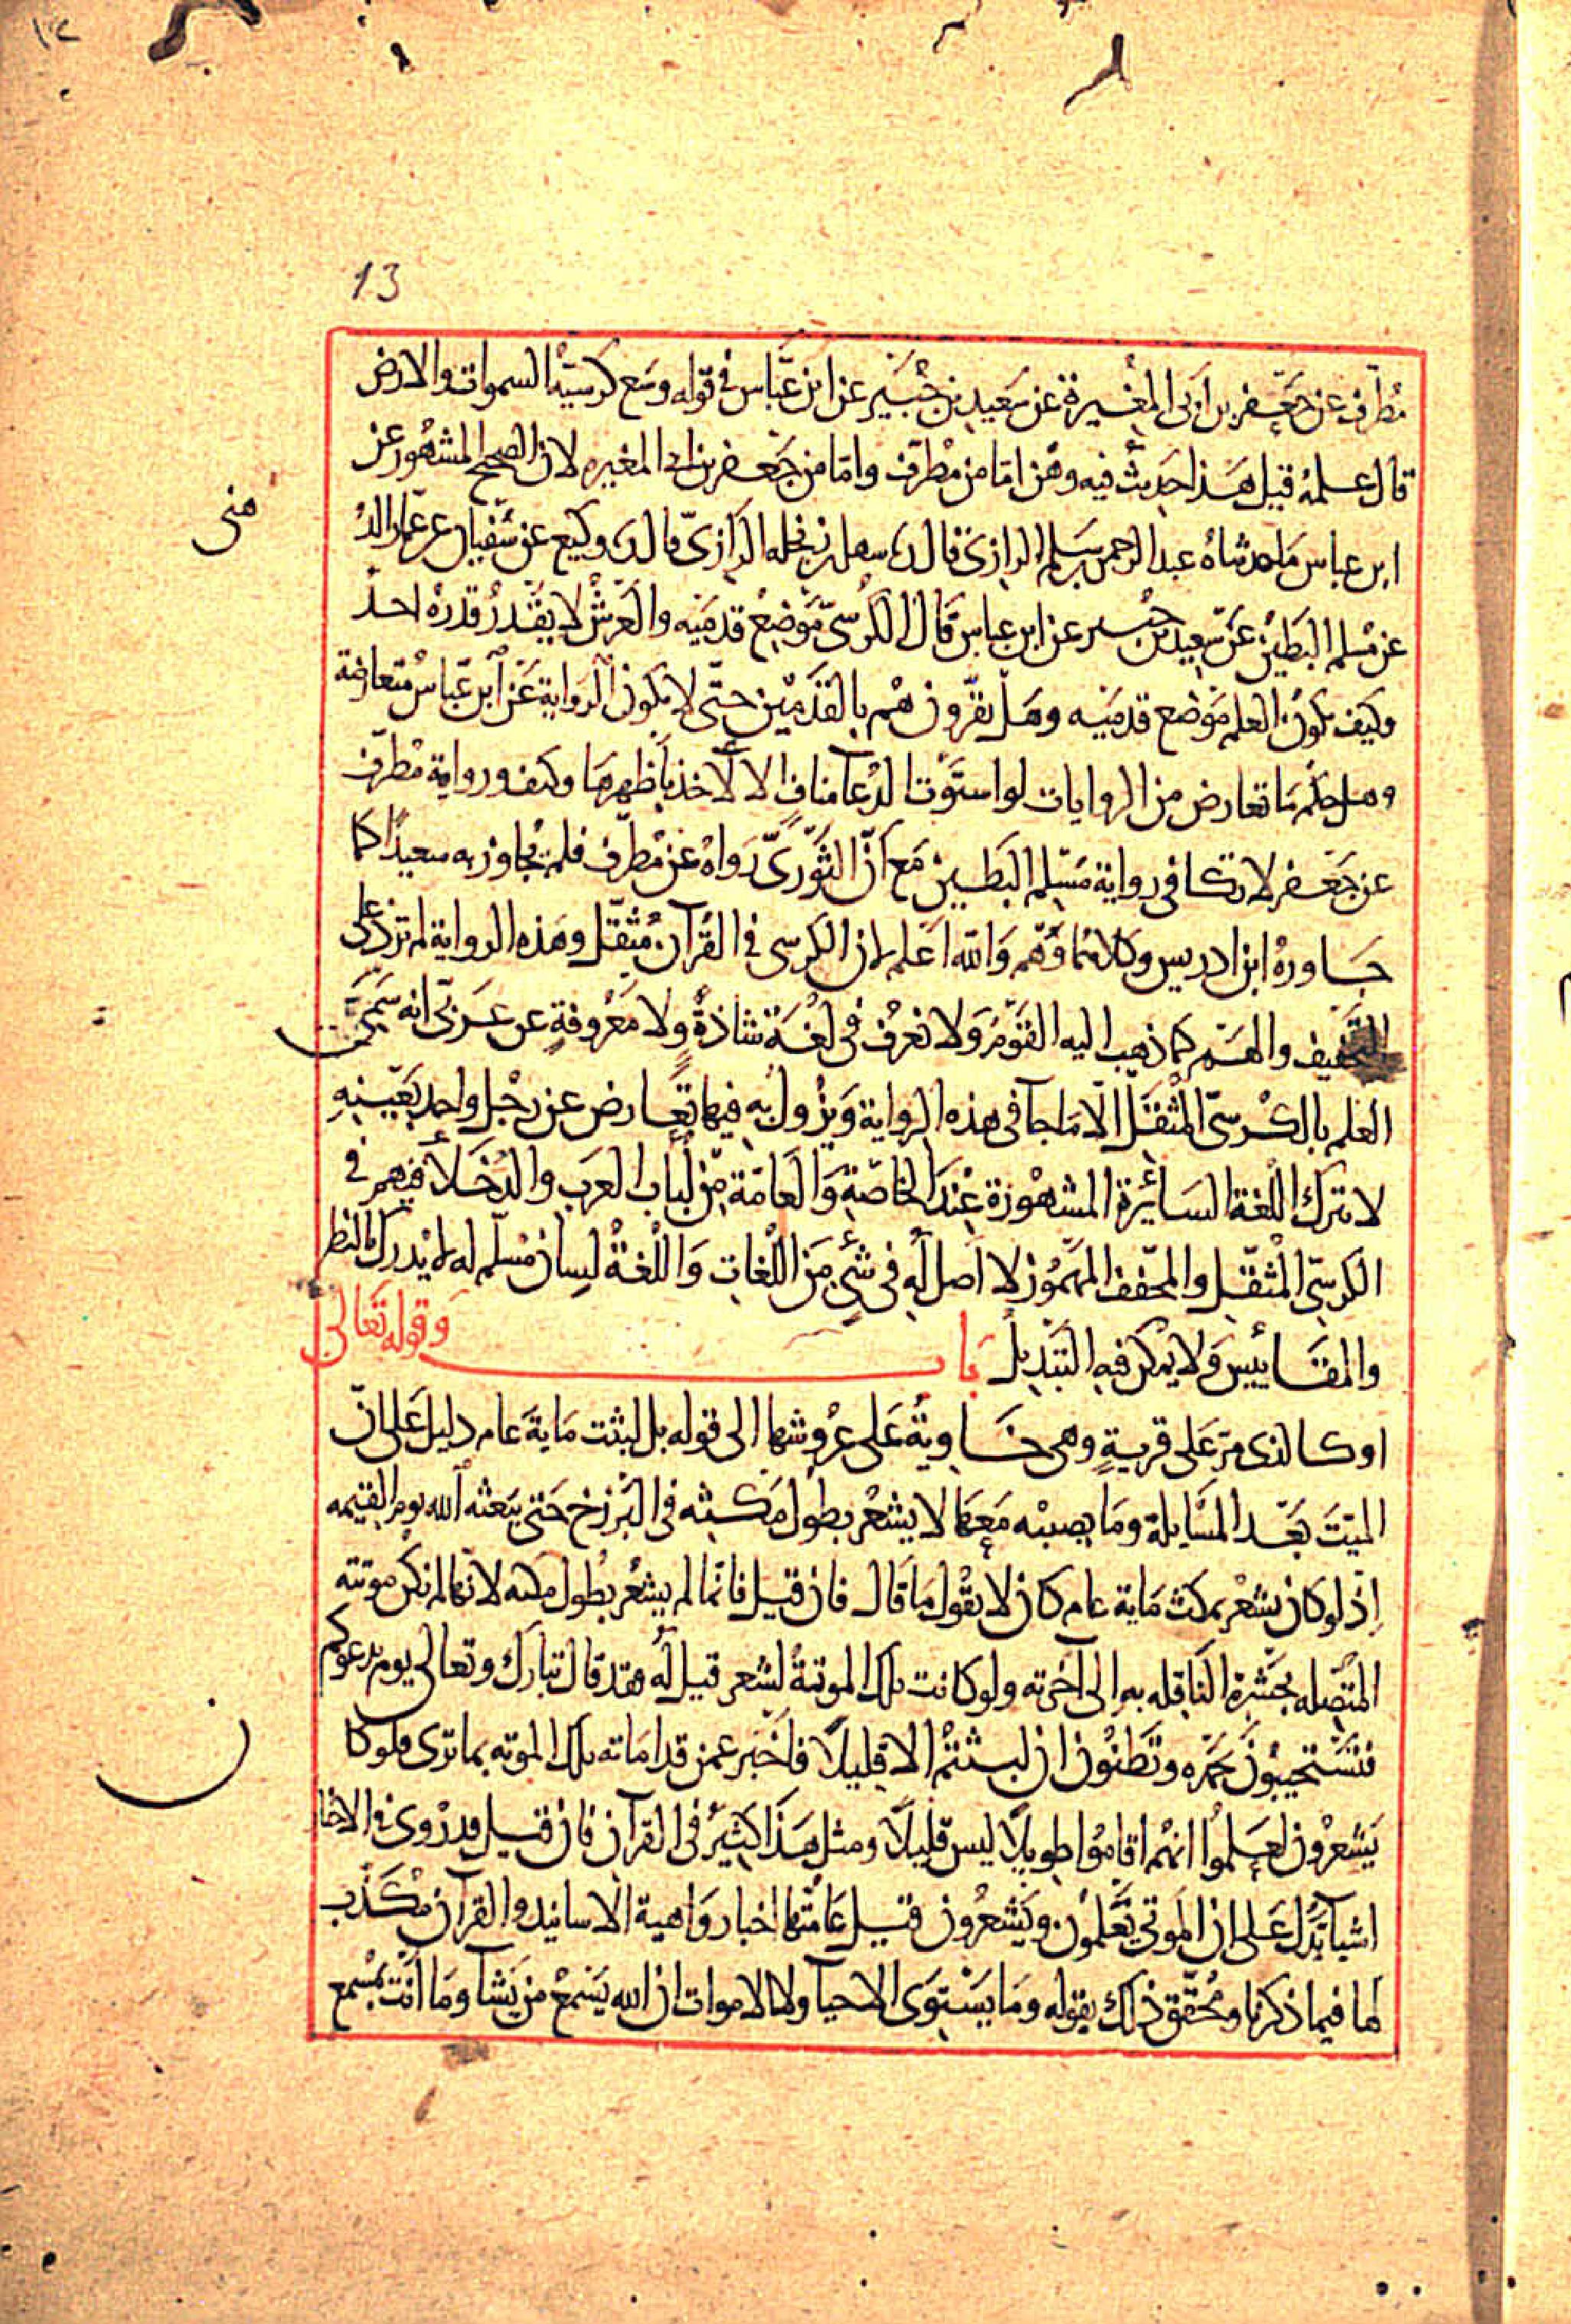 13
مُطرّف عن جَعفر بن ابى المُغيرة عن سَعيد بن جُبَير عن ابن عبّاس فى قوله وسع كرسيّه السموات والارض
قال علمهُ قيل هذا حديث فيه وهن اما من مطرف واما من جَعفر بن ابى المغيره لان الصحيح المشهور عن
ابن عباس ما حدثناه عبد الرحمن بن سلم الرازى قال سهل بن نجله الرازىّ قال وكيع عن سُفيان عن عمار الد
عن مُسلم البَطين عن سعيد بن جُبير عن ابن عباس قال الكرسىّ مَوضع قدمَيه والعَرش لا يقدّر قدرهُ احد
وكيف يكون العلم مَوضع قدميه وهل يقرّون هم بالقدمَين حتى لا تكون الرواية عن ابن عَبّاس مُتعارضة
وهل حكم ما تعارض من الروايات لو استَوت الا الاخذ باظهرها وكيف ورواية مُطرّف
عن جَعفر لا تكافى رواية مُسلم البَطين مَع انّ الثَوّرىّ رَواهُ عن مُطرّف فلم يجاوز به سعيدًا كما
جَاوزهُ ابن ادريس وكلاهما وَهم وَالله اعلم لان الكرسى فى القُرآن مُثقّل وهذه الرواية لم تزد على
التخفيف والهمز كما ذهب اليه القوم وَلا نعرف فى لغة شاذةٍ ولا مَعروفةٍ عن عَربىّ انه سَمّى
العلم بالكُرسىّ المُثقّل الّا ما جآ فى هذه الرواية وَيزُول به فيها تعارض عن رجُل واحد بعَينهِ
لا تترك اللغة السَائرة المشهورة عند الخاصّةِ وَالعامّة من لُبَاب العرب والدُخَلاء فيهم فى
الكرسىّ المثقّل والمخفف المهموز لا اصل له فى شئ مَن اللغات وَاللغة لسان مُسلّم له لا يدرك بالنظر
والمقَاييس وَلا يمكن فيه التبديل باب وقوله تعالى
او كالذى مرّ عَلى قريةٍ وهى خَاوية عَلى عرُوشها الى قوله بل لبثت ماية عام دليل عَلى انّ
الميّتَ بَعد المسَايلة وما يصيبه مَعها لا يشعر بطول مَكثه فى البَرزخ حَتى يَبعثه الله يوم القيمه
اِذ لو كان يشعر بمكث مَاية عام كان لا يقول مَا قال فان قيل فانما لم يشعر بطُول مكثه لانها لم تكن موتته
المتّصله بحَشره الناقله به الى آخرته ولو كانت تلك الموتة لشعر قيل له فقد قال تبارك وتعالى يوم يدعوكم
فتَسْتجيبُونَ بحمَده وتَظنون ان لبثتُم الا قليلاً فاخبر عمن قد اماته تلك الموته بما ترى فلو كا
يَشعرُون لعَلمُوا انهُم اقامُوا طويلاً ليس قليلاً ومثل هَذا كثير فى القرآن فان قيل قد رُوى فى الاخبا
اشيآ تدُل عَلى ان الموتى يَعلمُون ويَشعرُون قيل عَامّتها اخبار وَاهية الاسانيد والقرآن مُكَذّب
لها فيما ذكرنا ومُحَقّق ذلك بقوله وما يَستوى الاحيآ ولا الاموات ان الله يَسمعُ من يَشآ ومَا انت بمُسمع